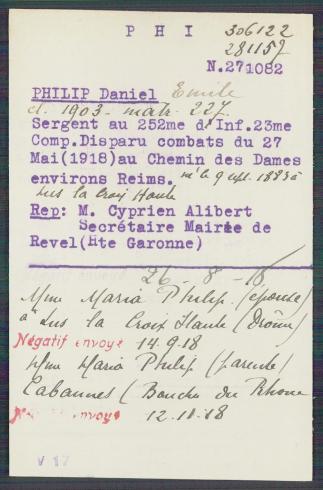 P H I
306122
281157
N.271082
PHILIP Daniel Emile
cl. 1903. matr. 227.
Sergent au 252me d'Inf.23me
Comp.Disparu combats du 27
Mai(1918)au Chemin des Dames
environs Reims. né le 9 sept. 1883 à
Lus la Croix Haute
Rep: M. Cyprien Alibert
Secrétaire Mairie de
Revel(Hte Garonne)
26-8-18
Mme Maria Philip. (épouse)
à Lus la Croix Haute (Drôme)
Négatif envoyé 14.9.18
Mme Maria Philip (parente)
Cabannes (Bouches du Rhone
Négatif envoyé 12.11.18
V 17